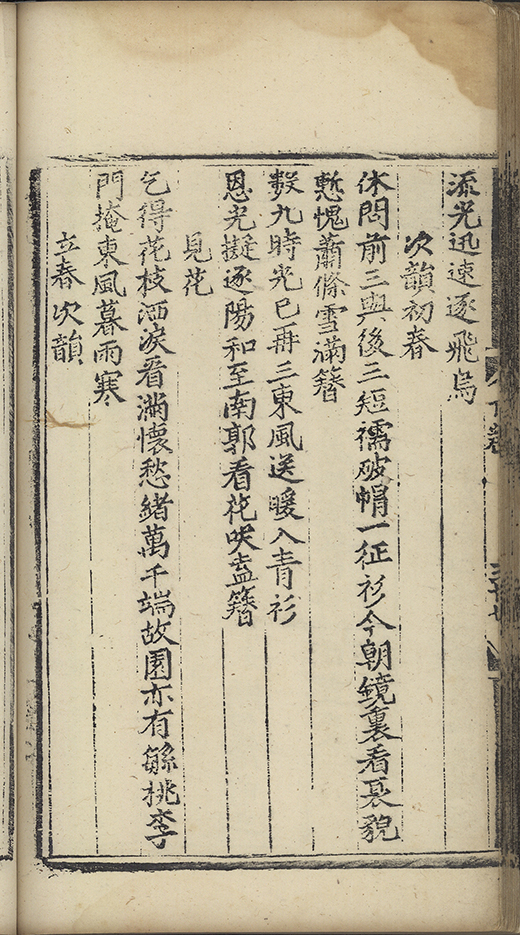 流光迅速逐飛烏
次韻初春
休問前三與後三短襦破帽一征衫今朝鏡裏看衰貌
慙愧蕭條雪滿簪
數九時光已再三東風送暖入青衫
恩光擬逐陽和至南郭看花咲盍簪
見花
乞得花枝洒淚看滿懷愁緒萬千端故園亦有繇桃李
門掩東風暮雨寒
立春次韻